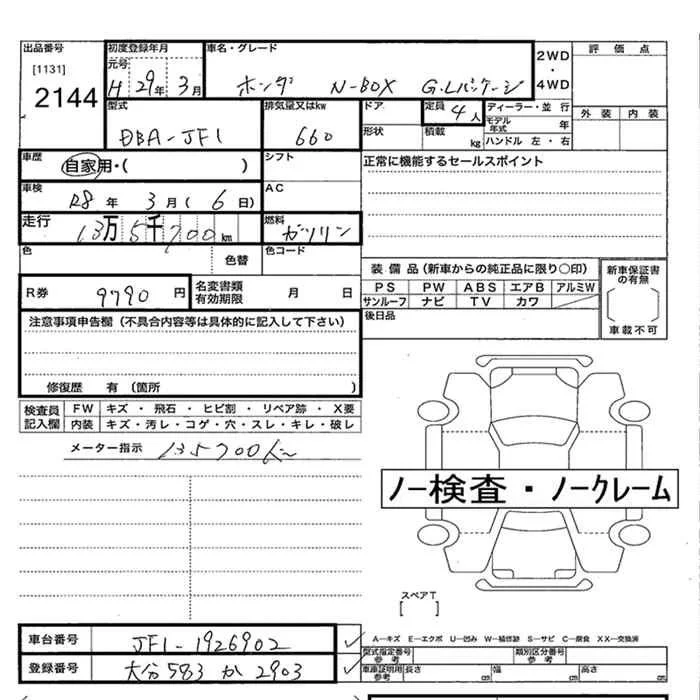 出品番号 初度登録年月 車名・グレード 評価点
[1131] 元号 2WD・4WD
2144 H 29年 3月 ホンダ N-BOX G.Lパッケージ
型式 排気量又はkw ドア 定員 4人 ディーラー・並行 外装 内装
DBA-JF1 660 形状 積載 kg モデル年式 年
ハンドル 左・右
車歴 自家用・( ) シフト 正常に機能するセールスポイント
車検 R8年 3月(6日) AC
走行 13万5千700km 燃料 ガソリン
色 色替 色コード
装備品(新車からの純正品に限り○印) 新車保証書の有無
R券 9790円 名変書類有効期限 月 日 PS PW ABS エアB アルミW
サンルーフ ナビ TV カワ
後日品 車載不可
注意事項申告欄(不具合内容等は具体的に記入して下さい)
修復歴 有(箇所 )
検査員記入欄 FW キズ・飛石・ヒビ割・リペア跡・X要
内装 キズ・汚レ・コゲ・穴・スレ・キレ・破レ
メーター指示 135700km
ノー検査・ノークレーム
スペアT
[ ]
車台番号 JF1-1926902
A-キズ E-エクボ U-凹み W-補修跡 S-サビ C-腐食 XX-交換済
型式指定番号参考 類別区分番号参考
登録番号 大分583 か 2903 車庫証明用参考 長さ cm 幅 cm 高さ cm